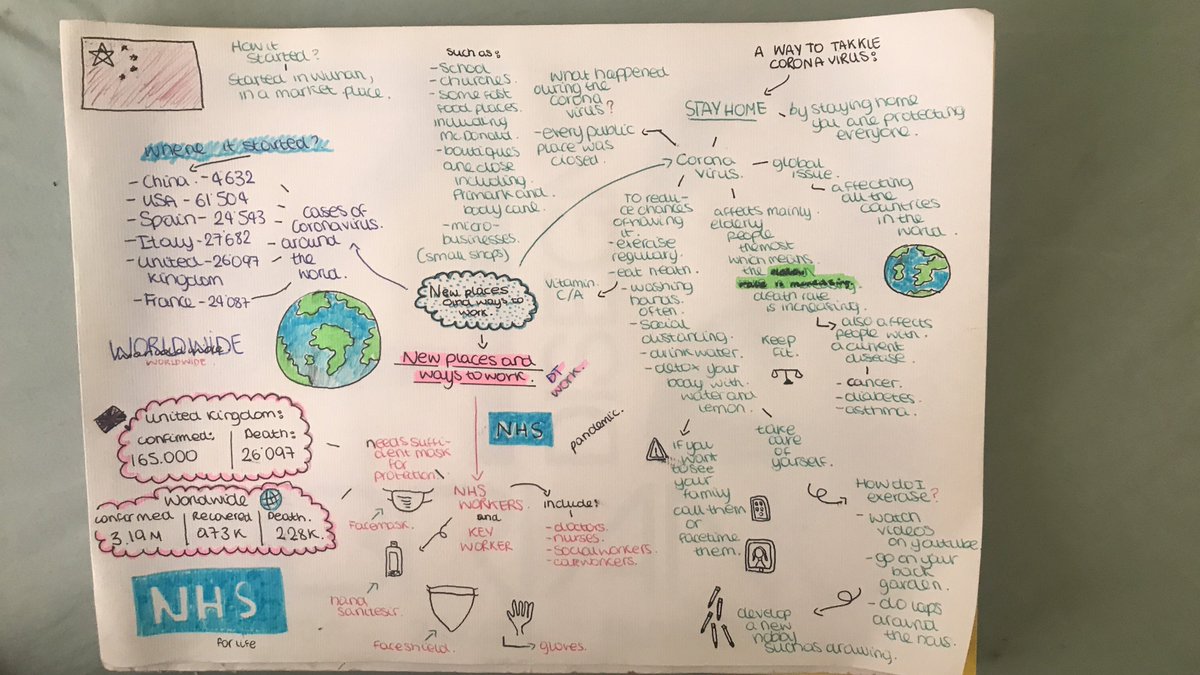 How it
started?
started in Wuhan,
in a market place.
Where it started?
- China. - 4'632
- USA - 61'504
- Spain - 24'543
- Italy - 27'682
- United - 26'097
Kingdom
- France - 24'087
cases of
coronavirus.
around
the
world.
WORLDWIDE
WORLDWIDE
united kingdom:
confirmed:
165.000
Death:
26'097
Worldwide
confirmed
3,19M
Recovered
973K
Death.
228K.
NHS
for life
such as:
- School
- churches.
- some fast
food places.
including
McDonald.
- boutiques
are close
including.
Primark and
body care.
- micro-
businesses.
(small shops)
What happened
during the
corona
virus?
- every public
place was
closed.
New places
and ways to
work.
New places and
ways to work.
DT
work.
NHS
pandemic.
needs suffi-
cient mask
for
protection
Facemask.
hand
sanitiser.
face shield.
gloves.
NHS
WORKERS.
and
KEY
WORKER
include:
- doctors.
- nurses.
- social workers.
- careworkers.
A WAY TO TAKKLE
CORONA VIRUS:
STAY HOME
by staying home
you are protecting
everyone.
Corona
virus.
global
issue.
affecting
all the
countries
in the
world.
TO redu-
ce chances
of having
it.
- exercise
regulary.
- eat health.
vitamin.
C/A
- washing
hands.
often.
- social
distancing.
- drink water.
- detox your
body with
water and
lemon.
affects mainly.
elderly
people
the most
which means.
the
death rate
is increasing.
also affects
people with
a current
disease.
- cancer.
- diabetes.
- asthma.
keep
fit.
take
care
of
yarself.
if you
want
to see
your
family
call them
or
facetime
them.
How do I
exercise?
- watch
videos
on youtube
- go on your
back
garden.
- do laps
around
the hous.
develop
a new
hobby
such as drawing.